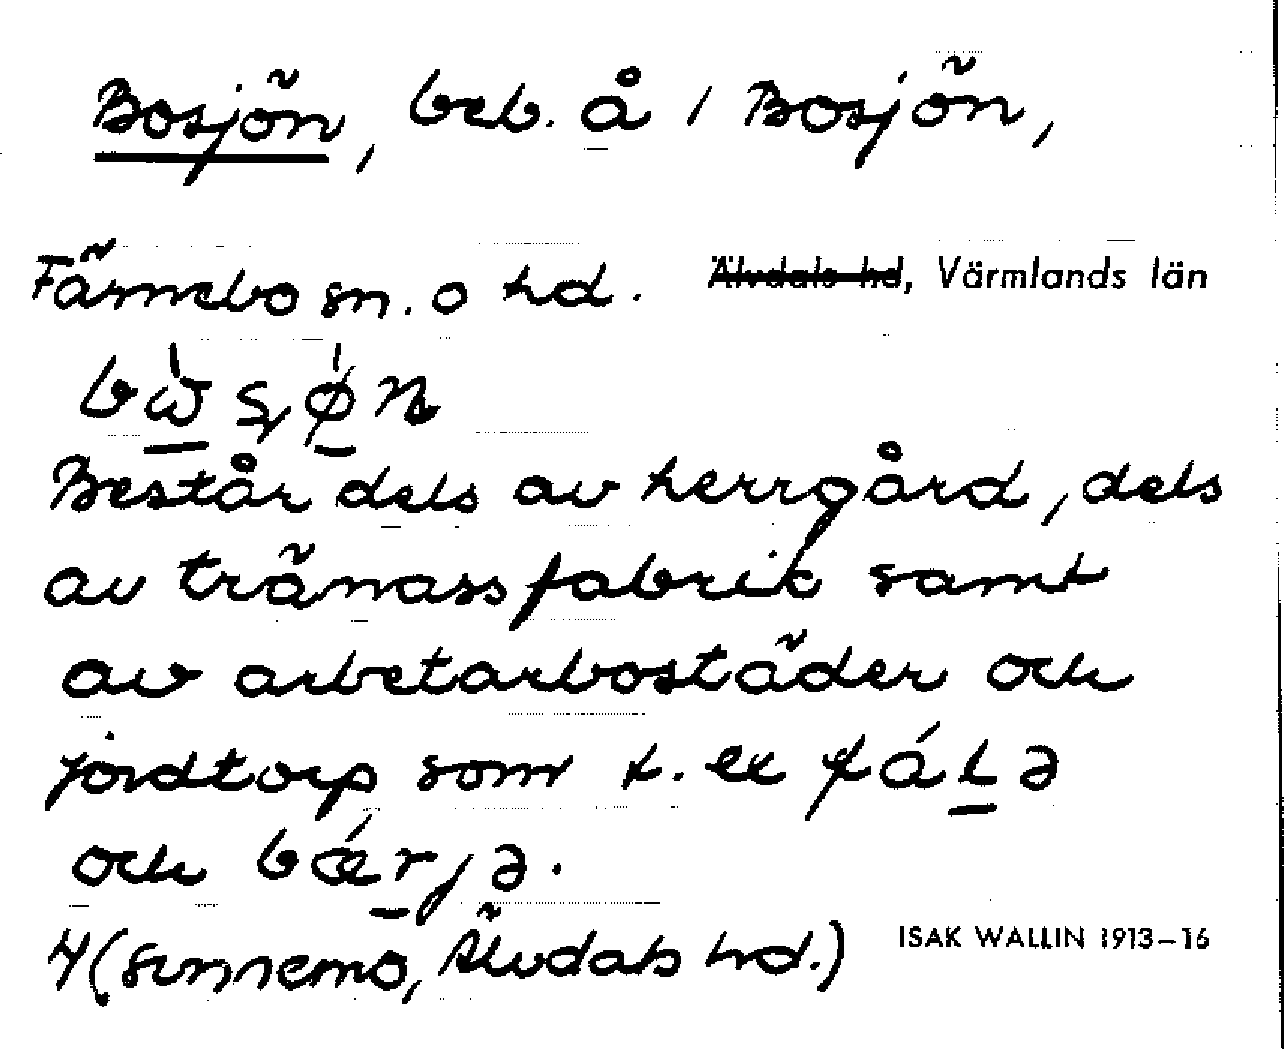 Bosjön, beb. å 1 Bosjön,
Färnebo sn. o hd. Älvdals hd, Värmlands län
Består dels av herrgård, dels
av tränassfabrik samt
av arbetarbostäder och
jordtorp som t. ex
och
(Sunnemo, Älvdals hd.) ISAK WALLIN 1913–16